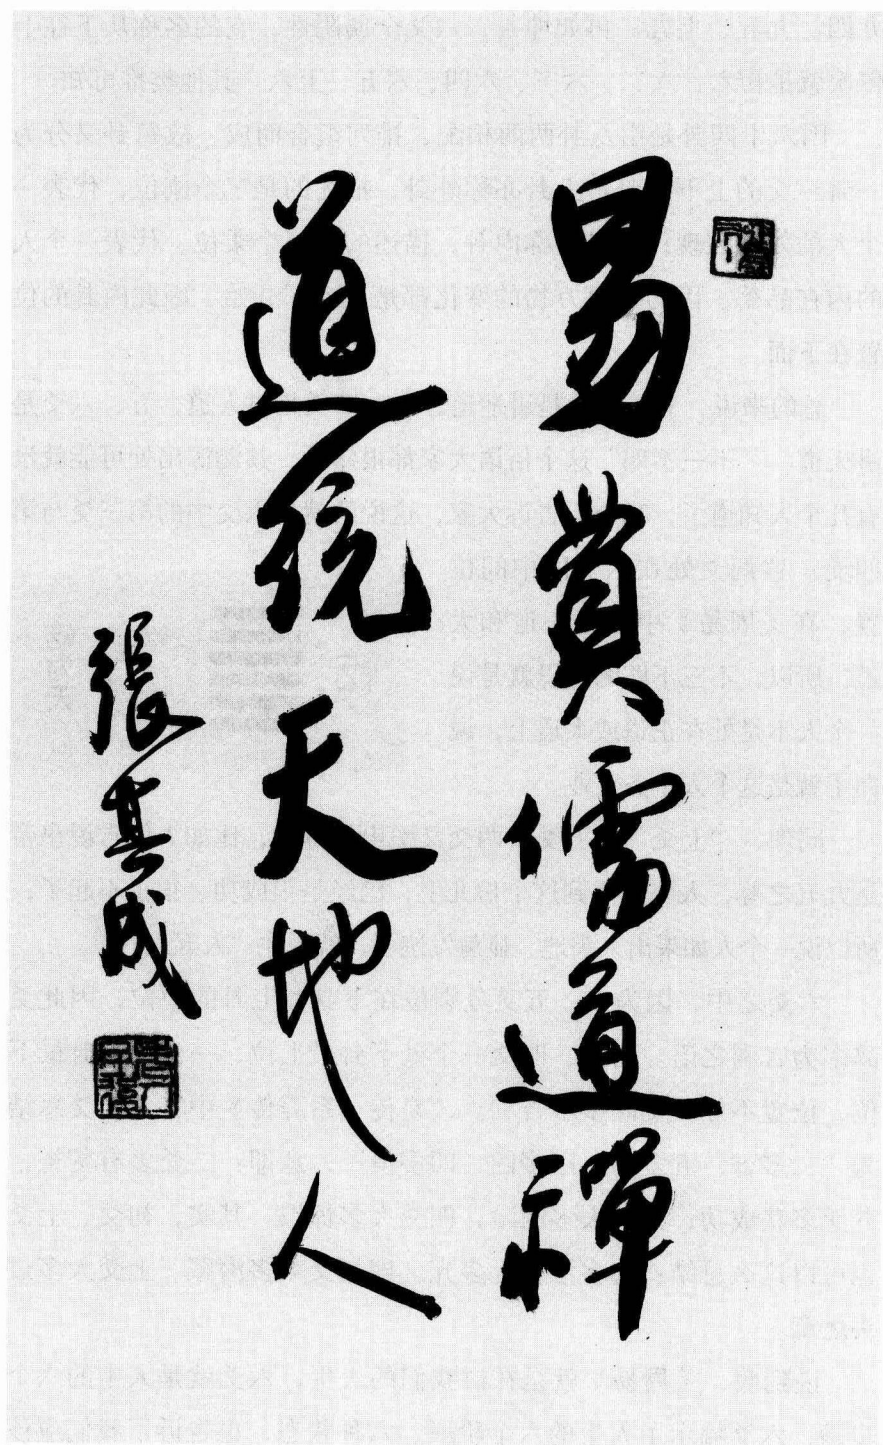 易貫儒道禪
道統天地人
張其成